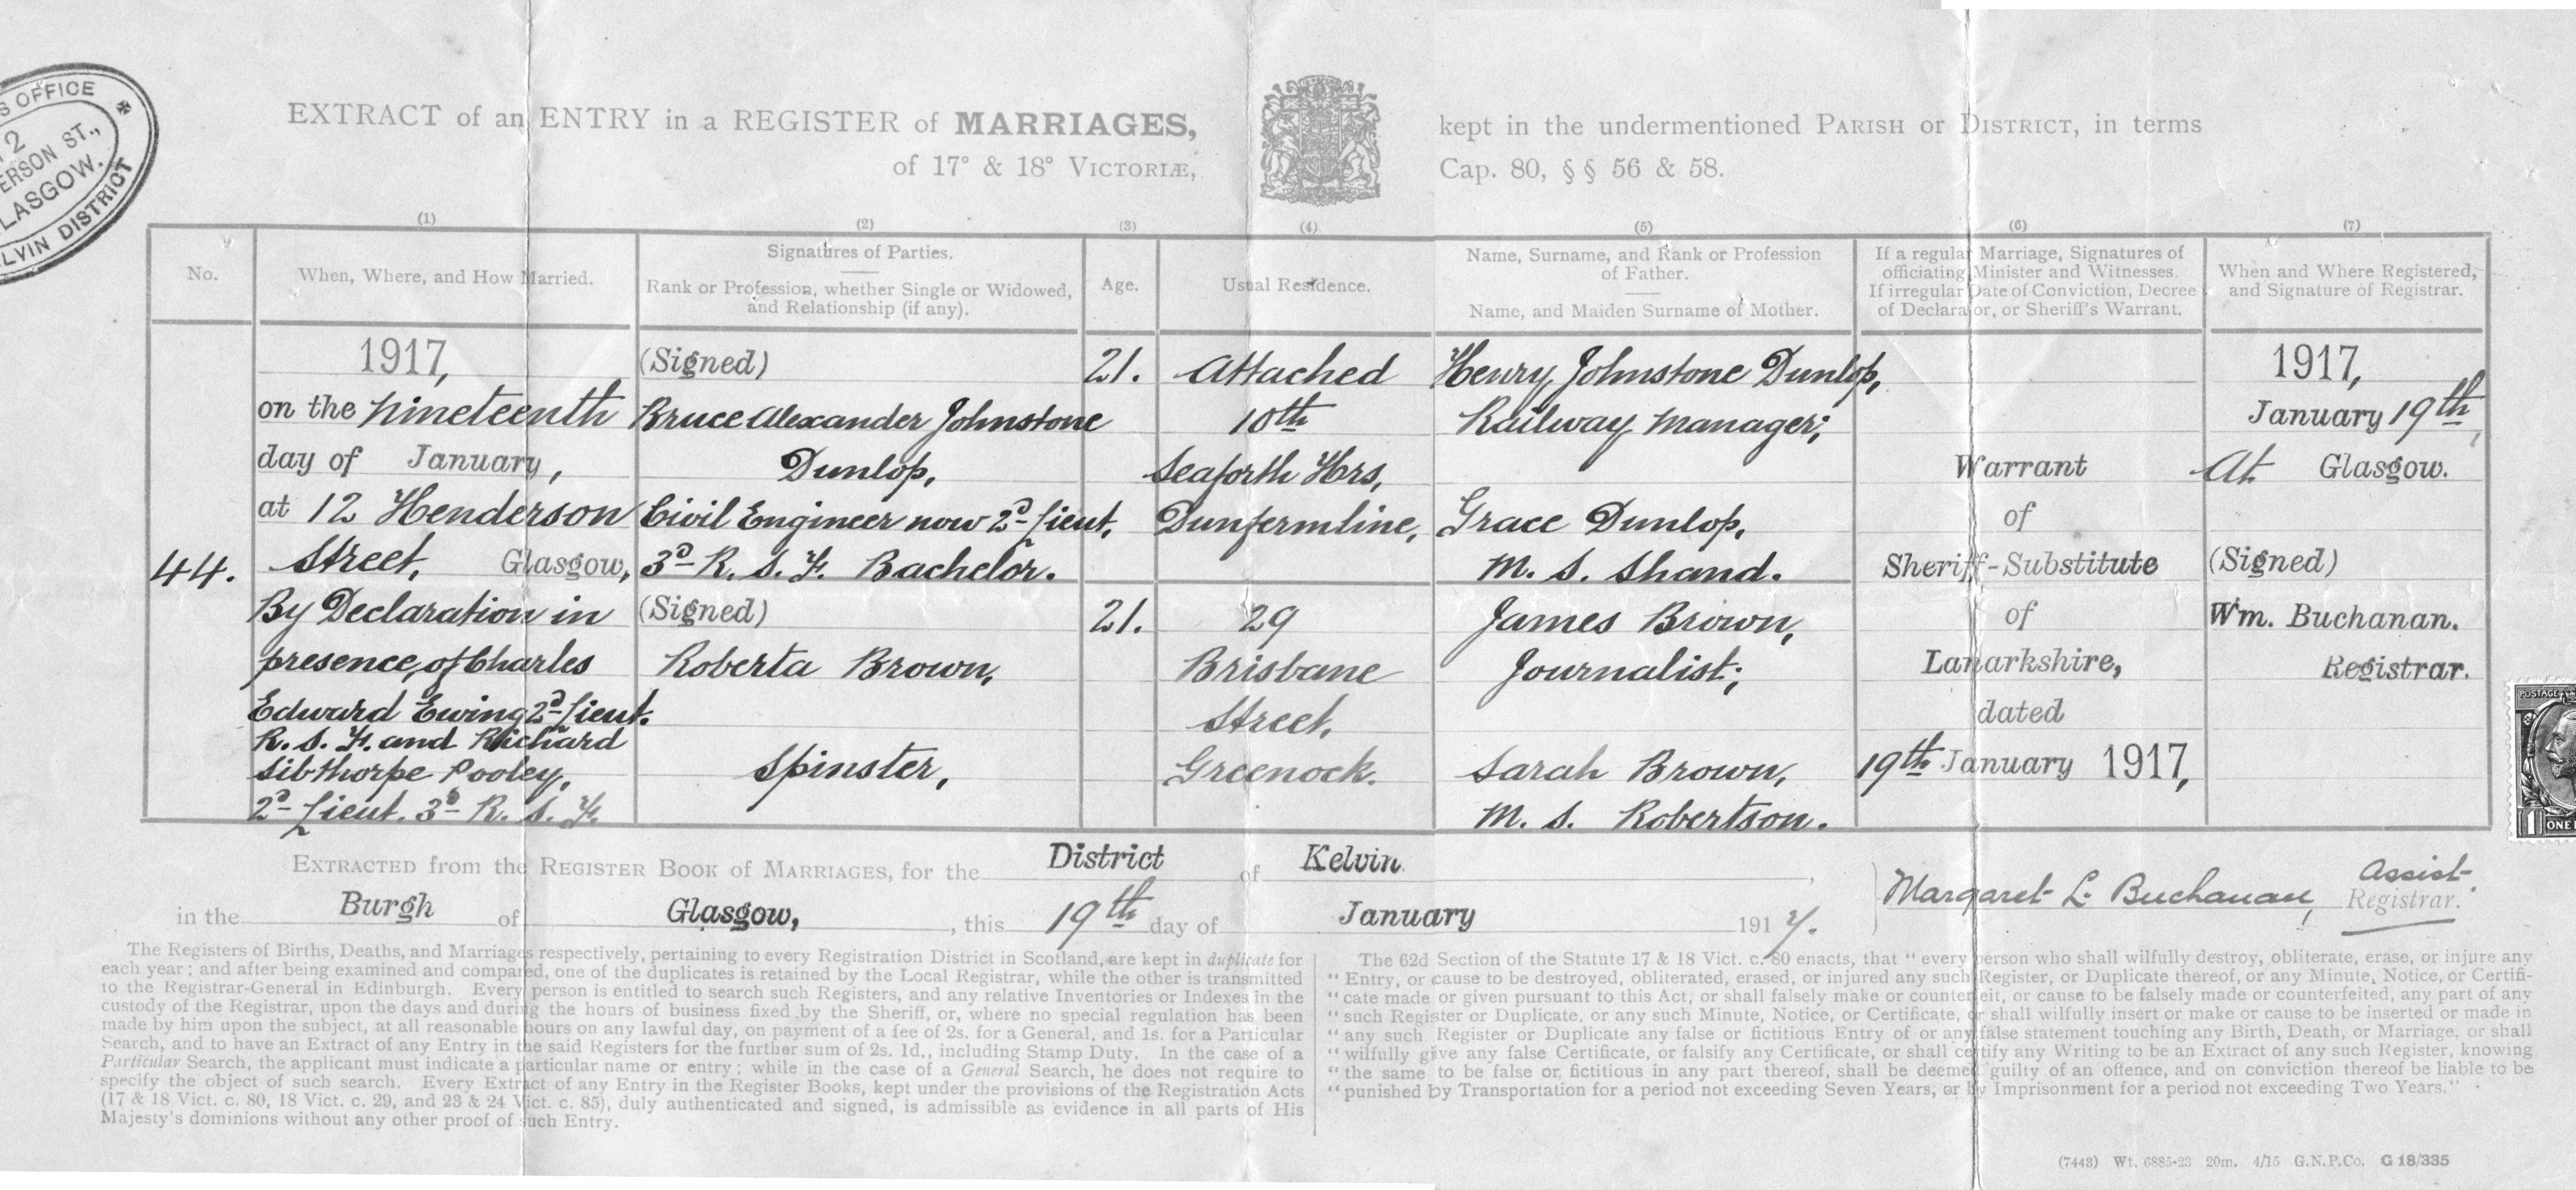 S OFFICE
2
ERSON ST.,
LASGOW.
LVIN DISTRICT
EXTRACT of an ENTRY in a REGISTER of MARRIAGES,
of 17° & 18° VICTORIÆ,
kept in the undermentioned PARISH or DISTRICT, in terms
Cap. 80, § § 56 & 58.
(1) (2) (3) (4) (5) (6) (7)
No.
When, Where, and How Married.
Signatures of Parties.
Rank or Profession, whether Single or Widowed,
and Relationship (if any).
Age.
Usual Residence.
Name, Surname, and Rank or Profession
of Father.
Name, and Maiden Surname of Mother.
If a regular Marriage, Signatures of
officiating Minister and Witnesses.
If irregular Date of Conviction, Decree
of Declarator, or Sheriff's Warrant.
When and Where Registered,
and Signature of Registrar.
44.
1917,
on the Nineteenth
day of January,
at 12 Henderson
Street, Glasgow,
By Declaration in
presence, of Charles
Edward Ewing 2d Lieut.
R. S. F. and Richard
Sibthorpe Pooley,
2d Lieut. 3d R. S. F.
(Signed)
Bruce Alexander Johnstone
Dunlop,
Civil Engineer now 2d Lieut,
3d R. S. F. Bachelor.
(Signed)
Roberta Brown,
Spinster,
21.
21.
Attached
10th
Seaforth Hrs,
Dunfermline,
29
Brisbane
Street,
Greenock.
Henry Johnstone Dunlop,
Railway Manager;
Grace Dunlop,
M. S. Shand.
James Brown,
Journalist;
Sarah Brown,
M. S. Robertson.
Warrant
of
Sheriff-Substitute
of
Lanarkshire,
dated
19th January 1917,
1917,
January 19th,
At Glasgow.
(Signed)
Wm. Buchanan.
Registrar.
POSTAGE
1 ONE
EXTRACTED from the REGISTER BOOK OF MARRIAGES, for the District of Kelvin,
in the Burgh of Glasgow, , this 19th day of January 1917.
Margaret L. Buchanan, Assist.
Registrar.
The Registers of Births, Deaths, and Marriages respectively, pertaining to every Registration District in Scotland, are kept in duplicate for
each year; and after being examined and compared, one of the duplicates is retained by the Local Registrar, while the other is transmitted
to the Registrar-General in Edinburgh. Every person is entitled to search such Registers, and any relative Inventories or Indexes in the
custody of the Registrar, upon the days and during the hours of business fixed by the Sheriff, or, where no special regulation has been
made by him upon the subject, at all reasonable hours on any lawful day, on payment of a fee of 2s. for a General, and 1s. for a Particular
Search, and to have an Extract of any Entry in the said Registers for the further sum of 2s. 1d., including Stamp Duty. In the case of a
Particular Search, the applicant must indicate a particular name or entry; while in the case of a General Search, he does not require to
specify the object of such search. Every Extract of any Entry in the Register Books, kept under the provisions of the Registration Acts
(17 & 18 Vict. c. 80, 18 Vict. c. 29, and 23 & 24 Vict. c. 85), duly authenticated and signed, is admissible as evidence in all parts of His
Majesty's dominions without any other proof of such Entry.
The 62d Section of the Statute 17 & 18 Vict. c. 80 enacts, that "every person who shall wilfully destroy, obliterate, erase, or injure any
"Entry, or cause to be destroyed, obliterated, erased, or injured any such Register, or Duplicate thereof, or any Minute, Notice, or Certifi-
"cate made or given pursuant to this Act, or shall falsely make or counterfeit, or cause to be falsely made or counterfeited, any part of any
"such Register or Duplicate, or any such Minute, Notice, or Certificate, or shall wilfully insert or make or cause to be inserted or made in
"any such Register or Duplicate any false or fictitious Entry of or any false statement touching any Birth, Death, or Marriage, or shall
"wilfully give any false Certificate, or falsify any Certificate, or shall certify any Writing to be an Extract of any such Register, knowing
"the same to be false or fictitious in any part thereof, shall be deemed guilty of an offence, and on conviction thereof be liable to be
"punished by Transportation for a period not exceeding Seven Years, or by Imprisonment for a period not exceeding Two Years."
(7443) Wt. 6885-23 20m. 4/15 G.N.P.Co. G 18/335